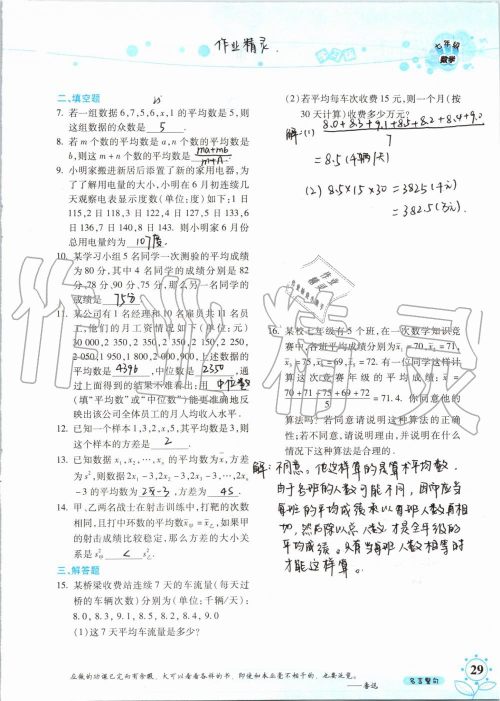 作业精灵
学习报
七年级
数学
二、填空题
7. 若一组数据6,7,5,6,x,1的平均数是5,则
这组数据的众数是 5 .
8. 若m个数的平均数是a,n个数的平均数是
b,则这m+n个数的平均数是 (ma+nb)/(m+n) .
9. 小明家搬进新居后添置了新的家用电器,为
了了解用电量的大小,小明在6月初连续几
天观察电表显示度数(单位:度)如下:1日
115,2日118,3日122,4日127,5日133,6
日136,7日140,8日143. 则小明家6月份
总用电量约为 107度 .
10. 某学习小组5名同学一次测验的平均成绩
为80分,其中4名同学的成绩分别是82
分,78分,90分,75分,那么另一名同学的
成绩是 75分 .
11. 某公司有1名经理和10名雇员共11名员
工,他们的月工资情况如下(单位:元)
30 000,2 350,2 350,2 350,2 150,2 150,
2 050,1 950,1 800,2 000,900,上述数据的
平均数是 4396 ,中位数是 2350 ,通
过上面得到的结果不难看出:用 中位数
(填“平均数”或“中位数”)能更准确地反
映该公司全体员工的月人均收入水平.
12. 已知一个样本1,3,2,x,5,其平均数是3,则
这个样本的方差是 2 .
13. 已知数据x₁,x₂,…,xₙ的平均数为x̄,方差
为s²,则数据2x₁-3,2x₂-3,2x₃-3,…,2xₙ
-3的平均数为 2x̄-3 ,方差为 4S² .
14. 甲、乙两名战士在射击训练中,打靶的次数
相同,且打中环数的平均数x̄甲=x̄乙,如果甲
的射击成绩比较稳定,那么方差的大小关
系是s²甲 < s²乙.
三、解答题
15. 某桥梁收费站连续7天的车流量(每天过
桥的车辆次数)分别为(单位:千辆/天):
8.0, 8.3, 9.1, 8.5, 8.2, 8.4, 9.0
(1)这7天平均车流量是多少?
(2)若平均每车次收费15元,则一个月(按
30天计算)收费多少万元?
解:(1) (8.0+8.3+9.1+8.5+8.2+8.4+9.0)/7
=8.5(千辆/天)
(2) 8.5×15×30=3825(千元)
=382.5(万元).
16. 某校七年级有5个班,在一次数学知识竞
赛中,各班平均成绩分别为x̄₁=70,x̄₂=71,
x̄₃=75,x̄₄=69,x̄₅=72. 有一位同学这样计
算这次竞赛年级的平均成绩:x̄=
(70+71+75+69+72)/5=71.4. 你同意他的
算法吗?若同意请说明这种算法的正确
性;若不同意,请说明理由,并说明在什么
情况下这种算法是合理的.
解:不同意. 他这样算的是算术平均数.
由于各班的人数可能不同,因而应当
每班的平均成绩乘以每班人数再相
加,然后除以总人数才是全年级的
平均成绩. 只有当每班人数相等时
才能这样算.
作业精灵
左做的功课已完向有余暇,大可以看看各样的书,即使和本业毫不相干的,也要泛览。
——鲁迅
名言警句
29